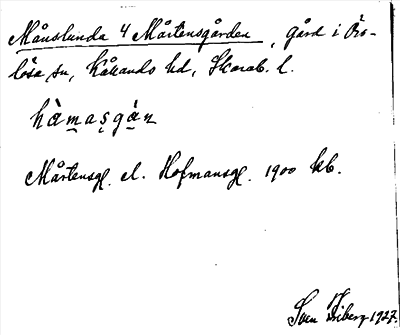 Månslunda 4 Mårtensgården, gård i Örs-
lösa sn, Kållands hd, Skarab. l.
hàmasgàn
Mårtensg. el. Hofmansg. 1900 kb.
Sven Friberg 1927.